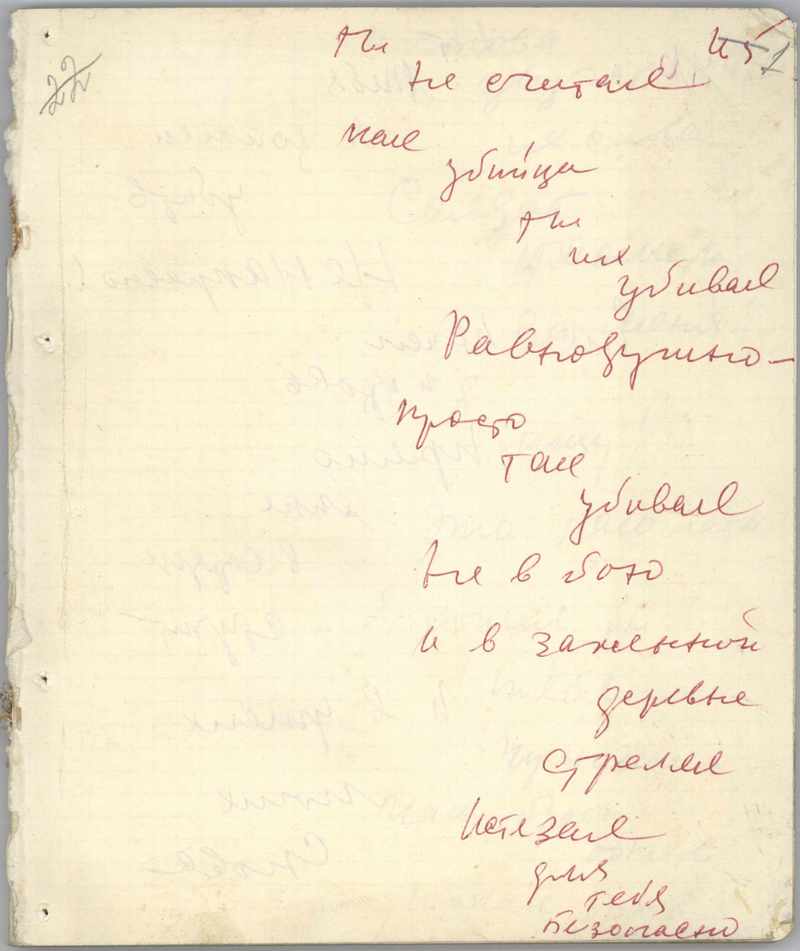 22
ты
не считал
как
убийца
ты
их
убивал
Равнодушно —
просто
так
убивал
Не в бою
и в заженной
деревне
стрелял
Истязал
для
тебя
безопасно